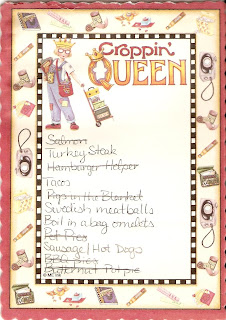 Croppin'
QUEEN
Salmon
Turkey Steak
Hamburger Helper
Tacos
Pigs in the Blanket
Swedish meatballs
Boil in a bag omelets
Pot Pies
Sausage/Hot Dogs
BBQ
Butternut